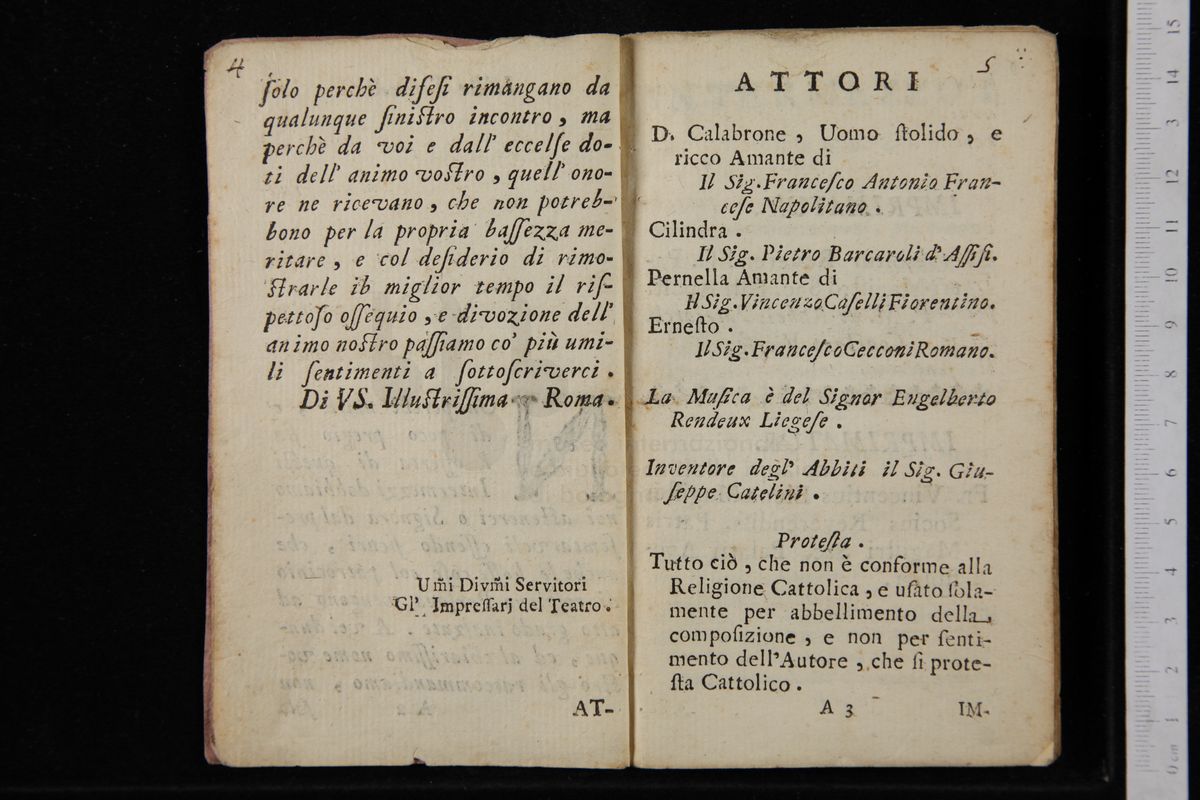 4
ſolo perchè difeſi rimangano da
qualunque ſiniſtro incontro, ma
perchè da voi e dall' eccelſe do-
ti dell' animo voſtro, quell' ono-
re ne ricevano, che non potreb-
bono per la propria baſſezza me-
ritare, e col deſiderio di rimo-
ſtrarle ib miglior tempo il riſ-
pettoſo oſſequio, e divozione dell'
animo noſtro paſſiamo co' più umi-
li ſentimenti a ſottoſcriverci.
Di VS. Illuſtriſſima Roma.
Um̃i Divm̃i Servitori
Gl' Impreſſarj del Teatro.
AT-
5
ATTORI
D. Calabrone, Uomo ſtolido, e
ricco Amante di
Il Sig. Franceſco Antonio Fran-
ceſe Napolitano.
Cilindra.
Il Sig. Pietro Barcaroli d'Aſſiſi.
Pernella Amante di
Il Sig. Vincenzo Caſelli Fiorentino.
Erneſto.
Il Sig. Franceſco Cecconi Romano.
La Muſica è del Signor Engelberto
Rendeux Liegeſe.
Inventore degl' Abbiti il Sig. Giu-
ſeppe Catelini.
Proteſta.
Tutto ciò, che non è conforme alla
Religione Cattolica, e uſato ſola-
mente per abbellimento della
compoſizione, e non per ſenti-
mento dell'Autore, che ſi prote-
ſta Cattolico.
A 3
IM-
15
14
3
12
11
10
9
8
7
6
5
4
3
2
1
0 cm